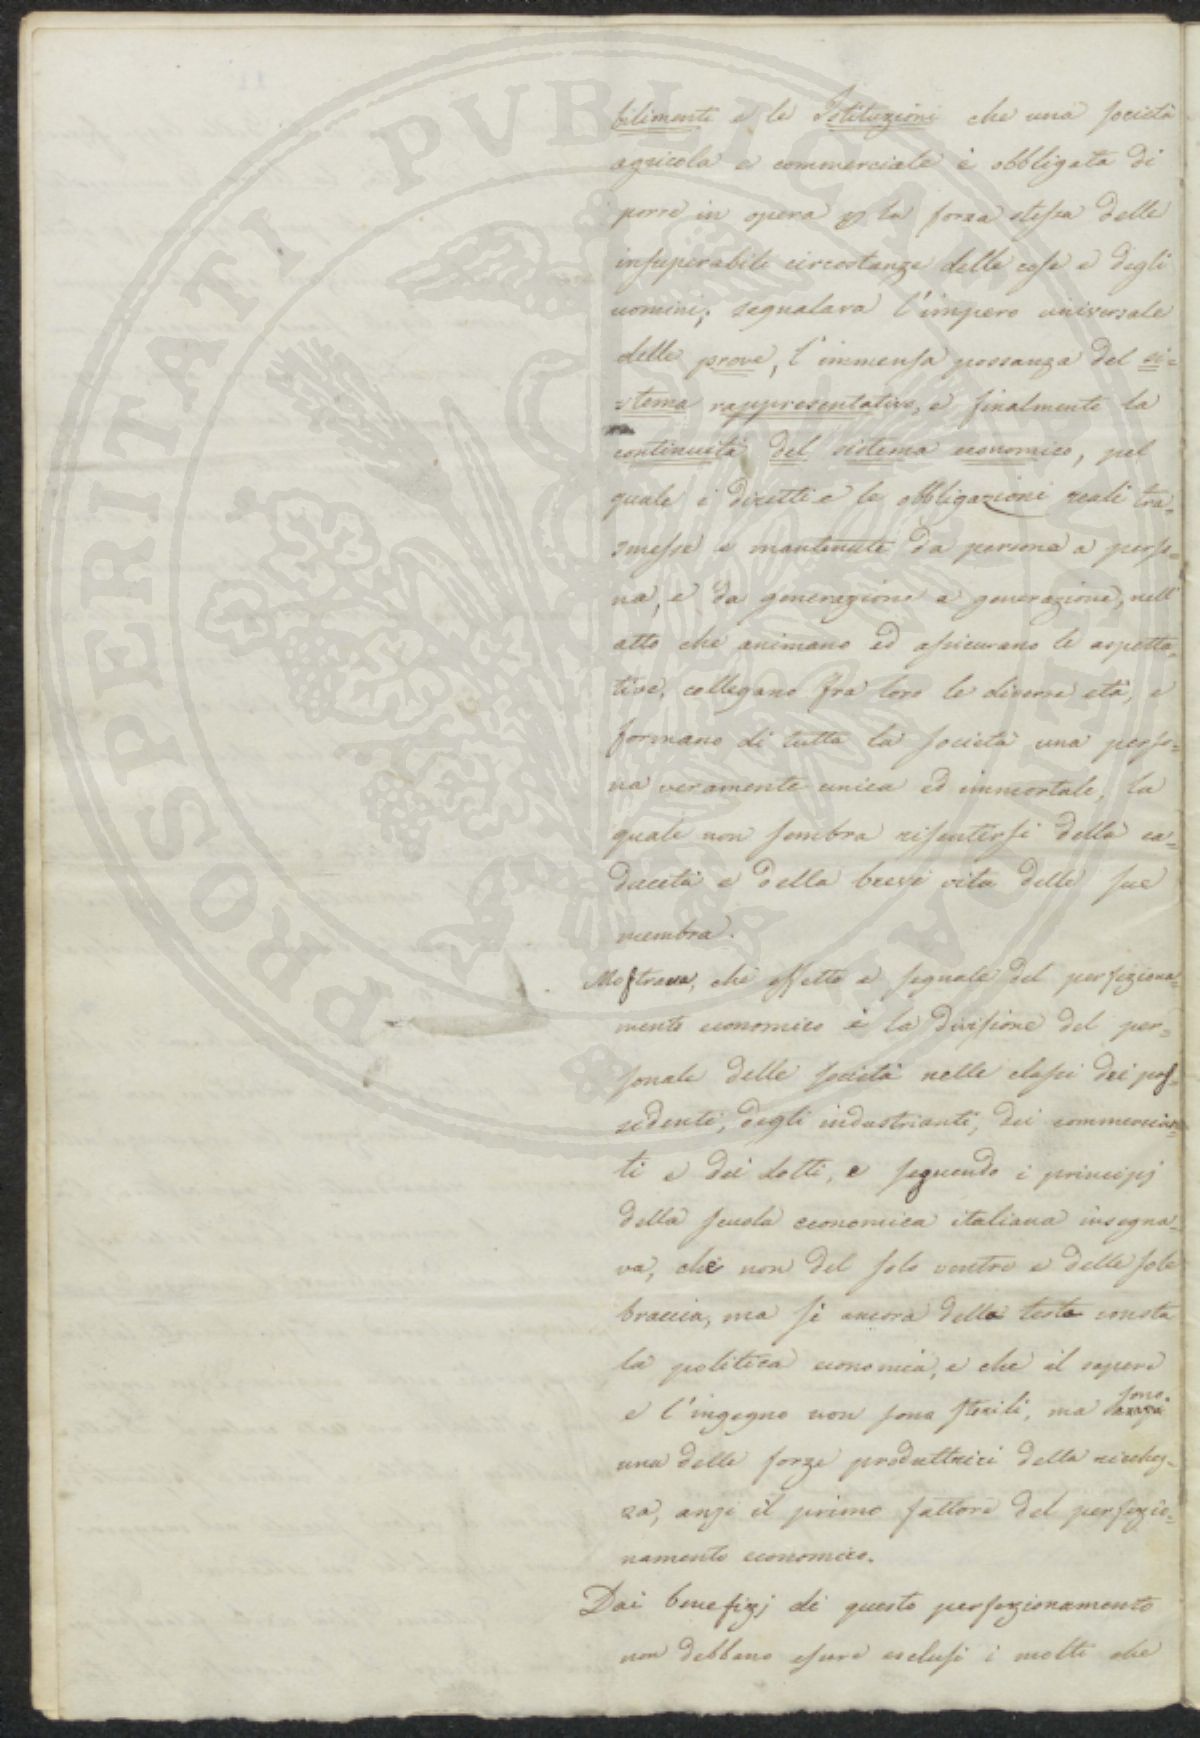 PROSPERITATI PVBLICAE AVGENDAE
bilimenti e le Istituzioni che una società
agricola e commerciale è obbligata di
porre in opera p la forza stessa delle
insuperabili circostanze delle cose e degli
uomini; segnalava l'impero universale
delle prove, l'immensa possanza del si=
=stema rappresentativo, e finalmente la
continuità del sistema economico, pel
quale i diritti e le obbligazioni reali tra=
smesse e mantenute da persona a perso=
na, e da generazione a generazione, nell'
atto che animano ed assicurano le aspetta=
tive, collegano fra loro le diverse età, e
formano di tutta la società una perso=
na veramente unica ed immortale, la
quale non sembra risentirsi della ca=
ducità e della breve vita delle sue
membra.
Mostrava, che effetto e segnale del perfeziona=
mento economico è la divisione del per=
sonale delle società nelle classi dei pos=
sidenti, degli industrianti, dei commercian=
ti e dei dotti, e seguendo i principj
della scuola economica italiana insegna=
va, che non del solo ventre e delle sole
braccia, ma sì ancora della testa consta
la politica economia, e che il sapere
e l'ingegno non sono sterili, ma sono
una delle forze produttrici della ricchez=
za, anzi il primo fattore del perfezio=
namento economico.
Dai benefizj di questo perfezionamento
non debbano essere esclusi i molti che